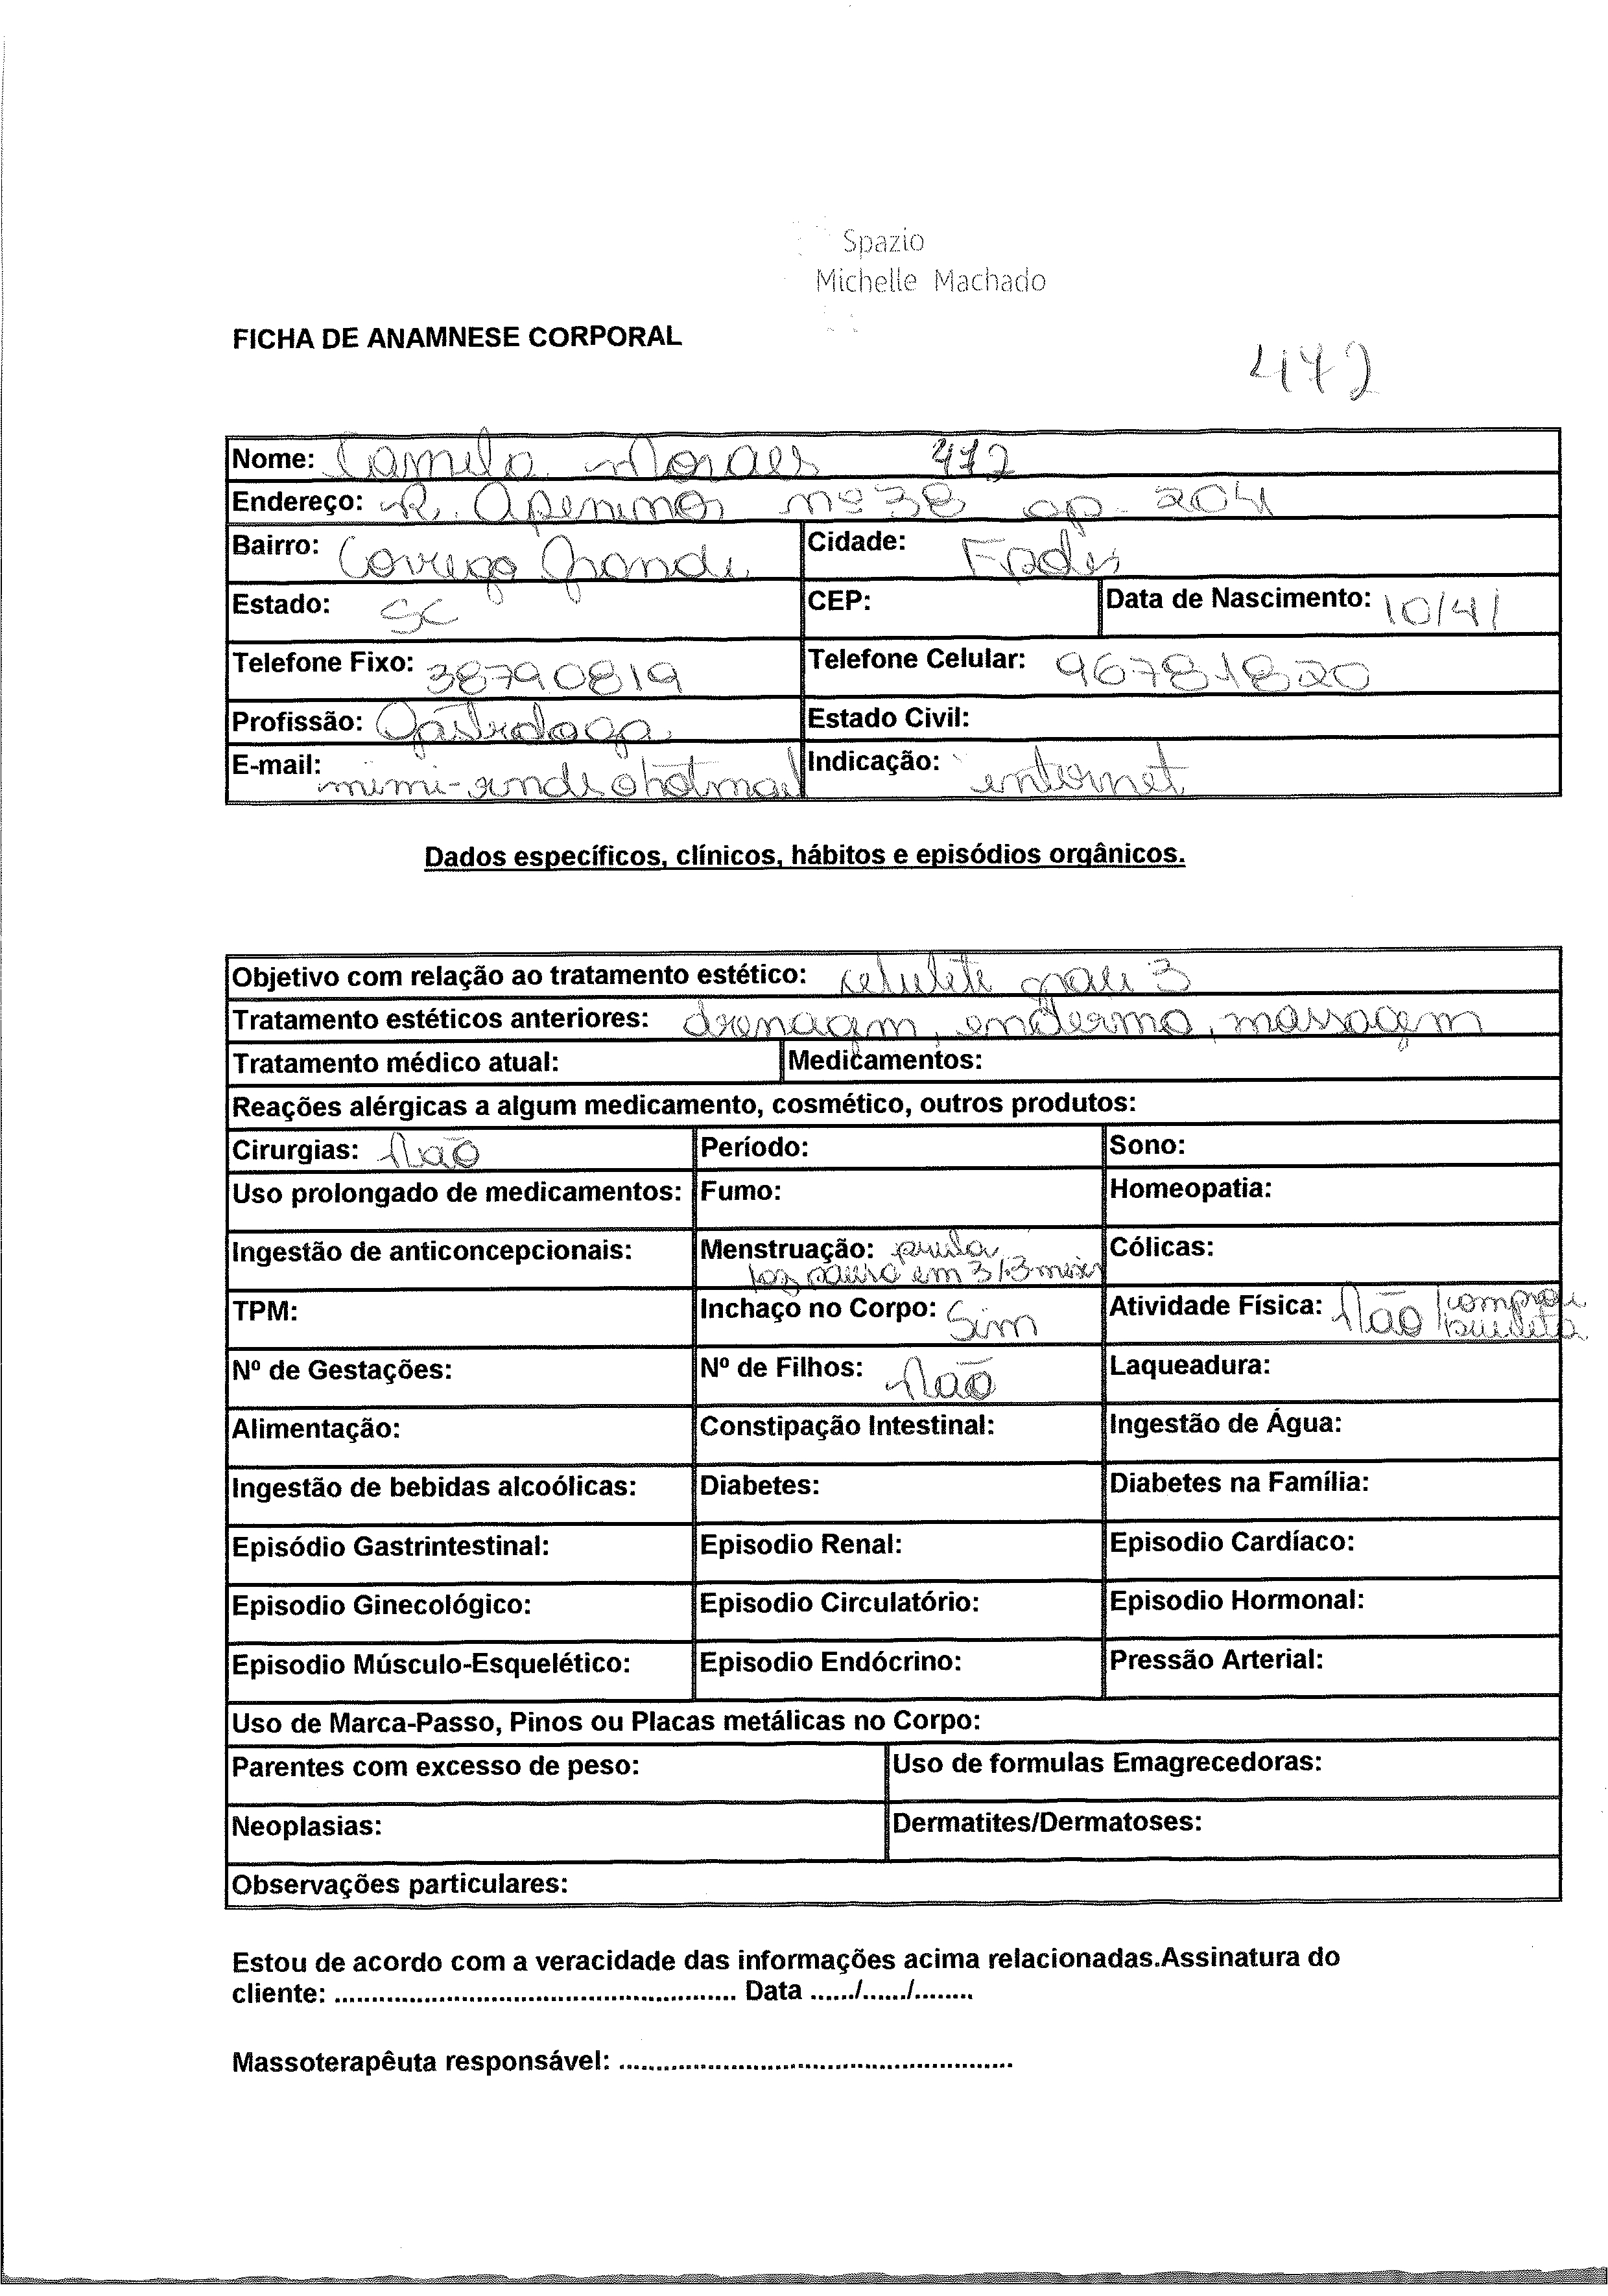 Spazio
Michelle Machado
FICHA DE ANAMNESE CORPORAL
472
Nome: Camila Moraes 472
Endereço: R. Apeninos nº 38 ap. 204
Bairro: Corrego Grande Cidade: Fpolis
Estado: SC CEP: Data de Nascimento: 10/4/
Telefone Fixo: 38790819 Telefone Celular: 96781820
Profissão: Estado Civil:
E-mail: Indicação: internet
Dados específicos, clínicos, hábitos e episódios orgânicos.
Objetivo com relação ao tratamento estético: celulite grau 3
Tratamento estéticos anteriores: drenagem, endermo, massagem
Tratamento médico atual: Medicamentos:
Reações alérgicas a algum medicamento, cosmético, outros produtos:
Cirurgias: Não Período: Sono:
Uso prolongado de medicamentos: Fumo: Homeopatia:
Ingestão de anticoncepcionais: Menstruação: Cólicas:
em 3/3 meses
TPM: Inchaço no Corpo: Sim Atividade Física: Não comprou
bicicleta
Nº de Gestações: Nº de Filhos: Não Laqueadura:
Alimentação: Constipação Intestinal: Ingestão de Água:
Ingestão de bebidas alcoólicas: Diabetes: Diabetes na Família:
Episódio Gastrintestinal: Episodio Renal: Episodio Cardíaco:
Episodio Ginecológico: Episodio Circulatório: Episodio Hormonal:
Episodio Músculo-Esquelético: Episodio Endócrino: Pressão Arterial:
Uso de Marca-Passo, Pinos ou Placas metálicas no Corpo:
Parentes com excesso de peso: Uso de formulas Emagrecedoras:
Neoplasias: Dermatites/Dermatoses:
Observações particulares:
Estou de acordo com a veracidade das informações acima relacionadas.Assinatura do
cliente: ...................................................... Data ....../....../........
Massoterapêuta responsável: .....................................................